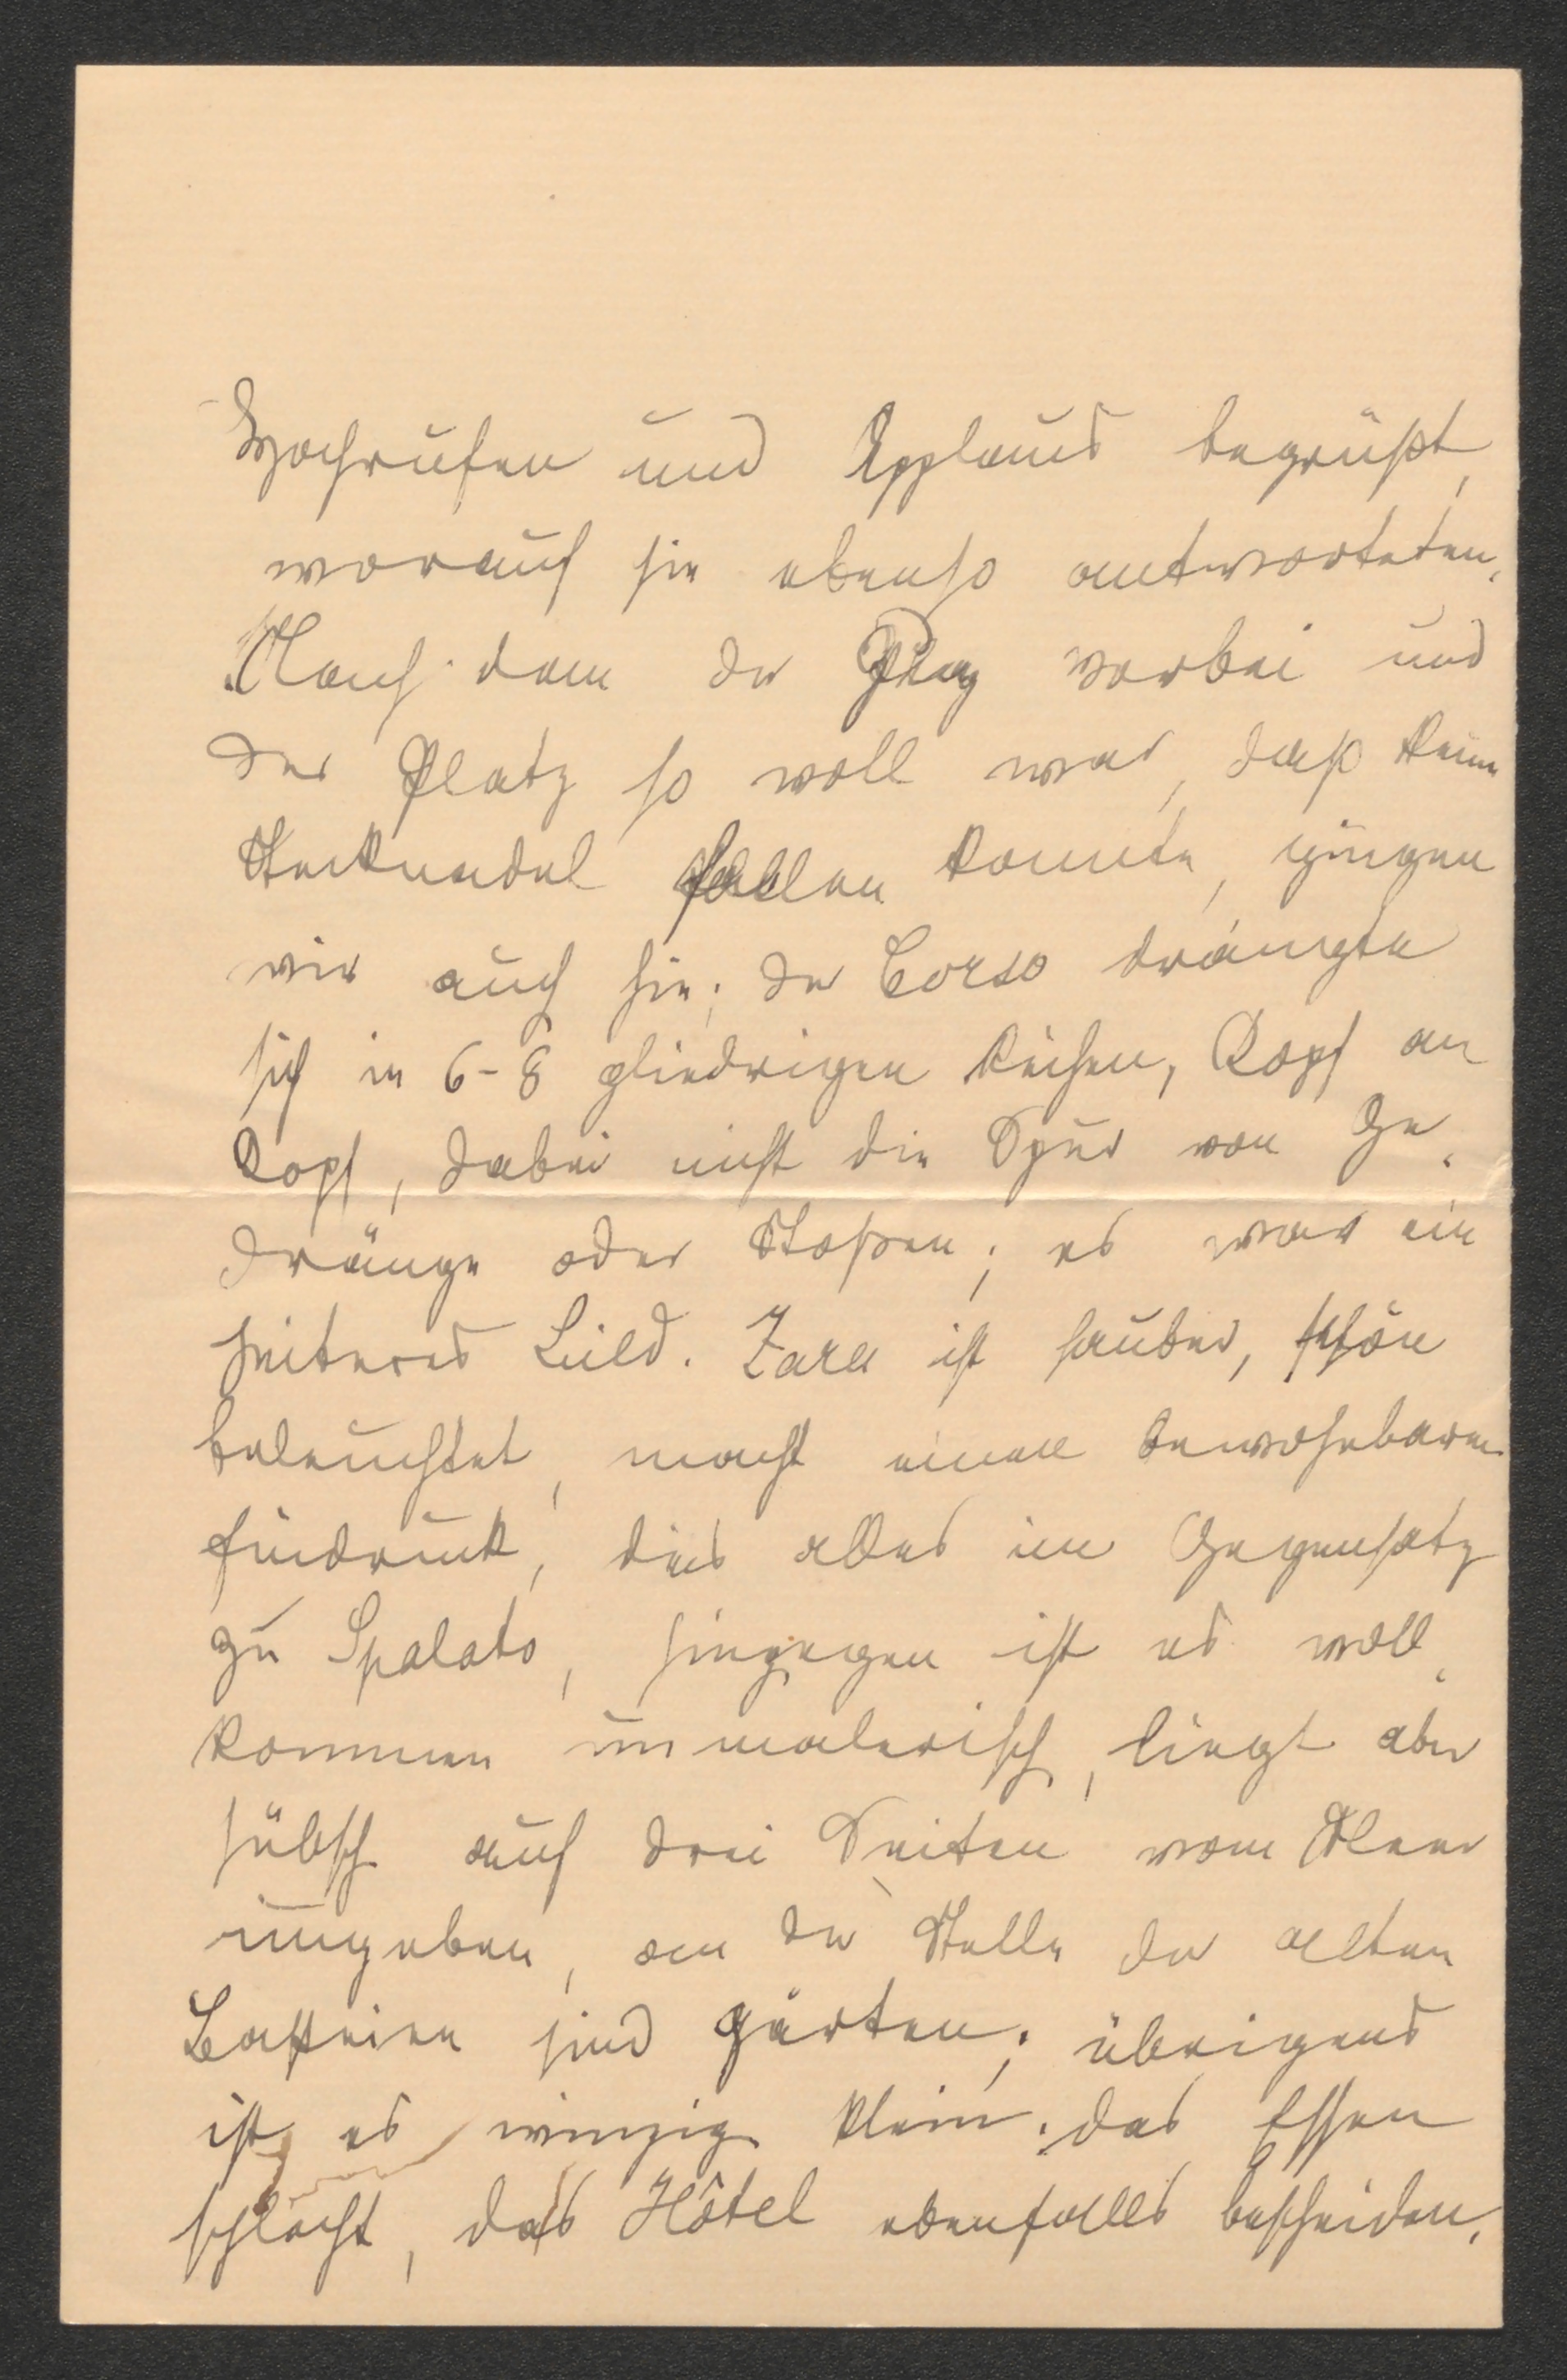 Hochrufen und Applaus begrüßt,
worauf sie ebenso antworteten.
Nach dem der Zug vorbei und
der Platz so voll war, daß keine
Stecknadel fallen konnte, gingen
wir auch hin; der Corso drängte
sich in 6-8 gliedrigen Reihen, Kopf an
Kopf, dabei nicht die Spur von Ge-
dränge oder Stoßen; es war ein
heiteres Bild. Zara ist sauber, schön
beleuchtet, macht einen bewohnbaren
Eindruck, dies alles im Gegensatz
zu Spalato, hingegen ist es voll-
kommen unmalerisch, liegt aber
hübsch auf drei Seiten vom Meer
umgeben, an der Stelle der alten
Basteien sind Gärten; übrigens
ist es winzig klein. das Essen
schlecht, das Hôtel ebenfalls bescheiden.